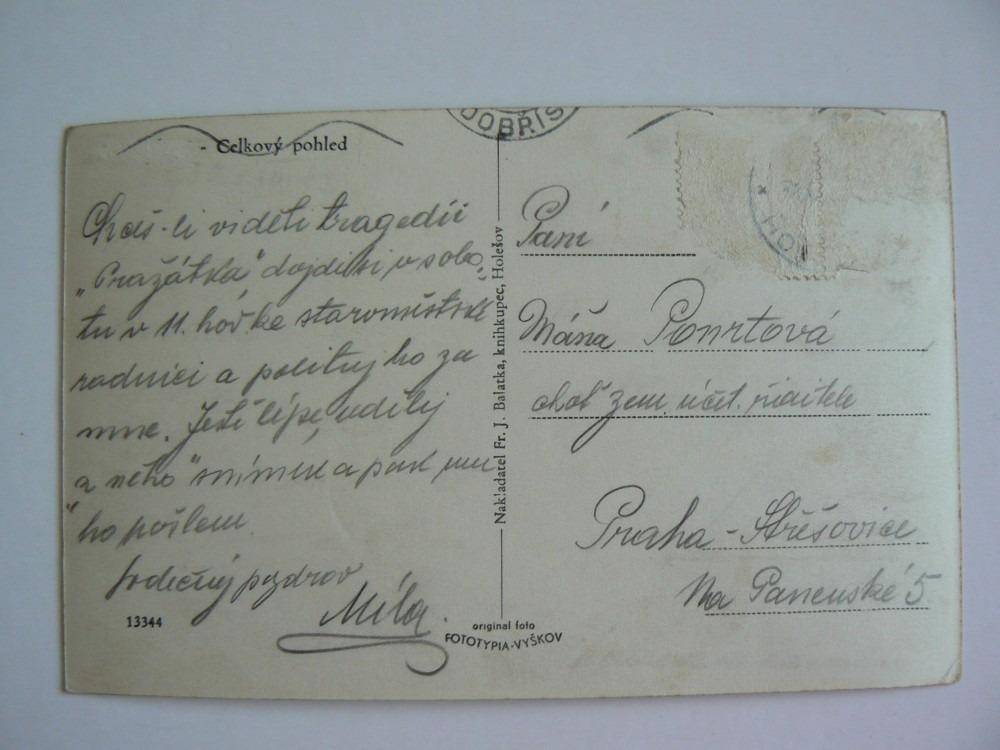 DOBŘÍŠ
- Celkový pohled
Chceš-li viděti tragedii
„Pražátka", dojdi si v sobo-
tu v 11. hod ke staroměstské
radnici a polituj ho za
mne. Ješ lépe, udělej
z něho snímek a pak mu
ho pošlem
Srdečný pozdrav
Míla.
13344
Nakladatel Fr. J. Balatka, knihkupec, Holešov
original foto
FOTOTYPIA-VYŠKOV
Paní
Máňa
choť zem. účet. ředitele
Praha - Střešovice
Na Panenské 5